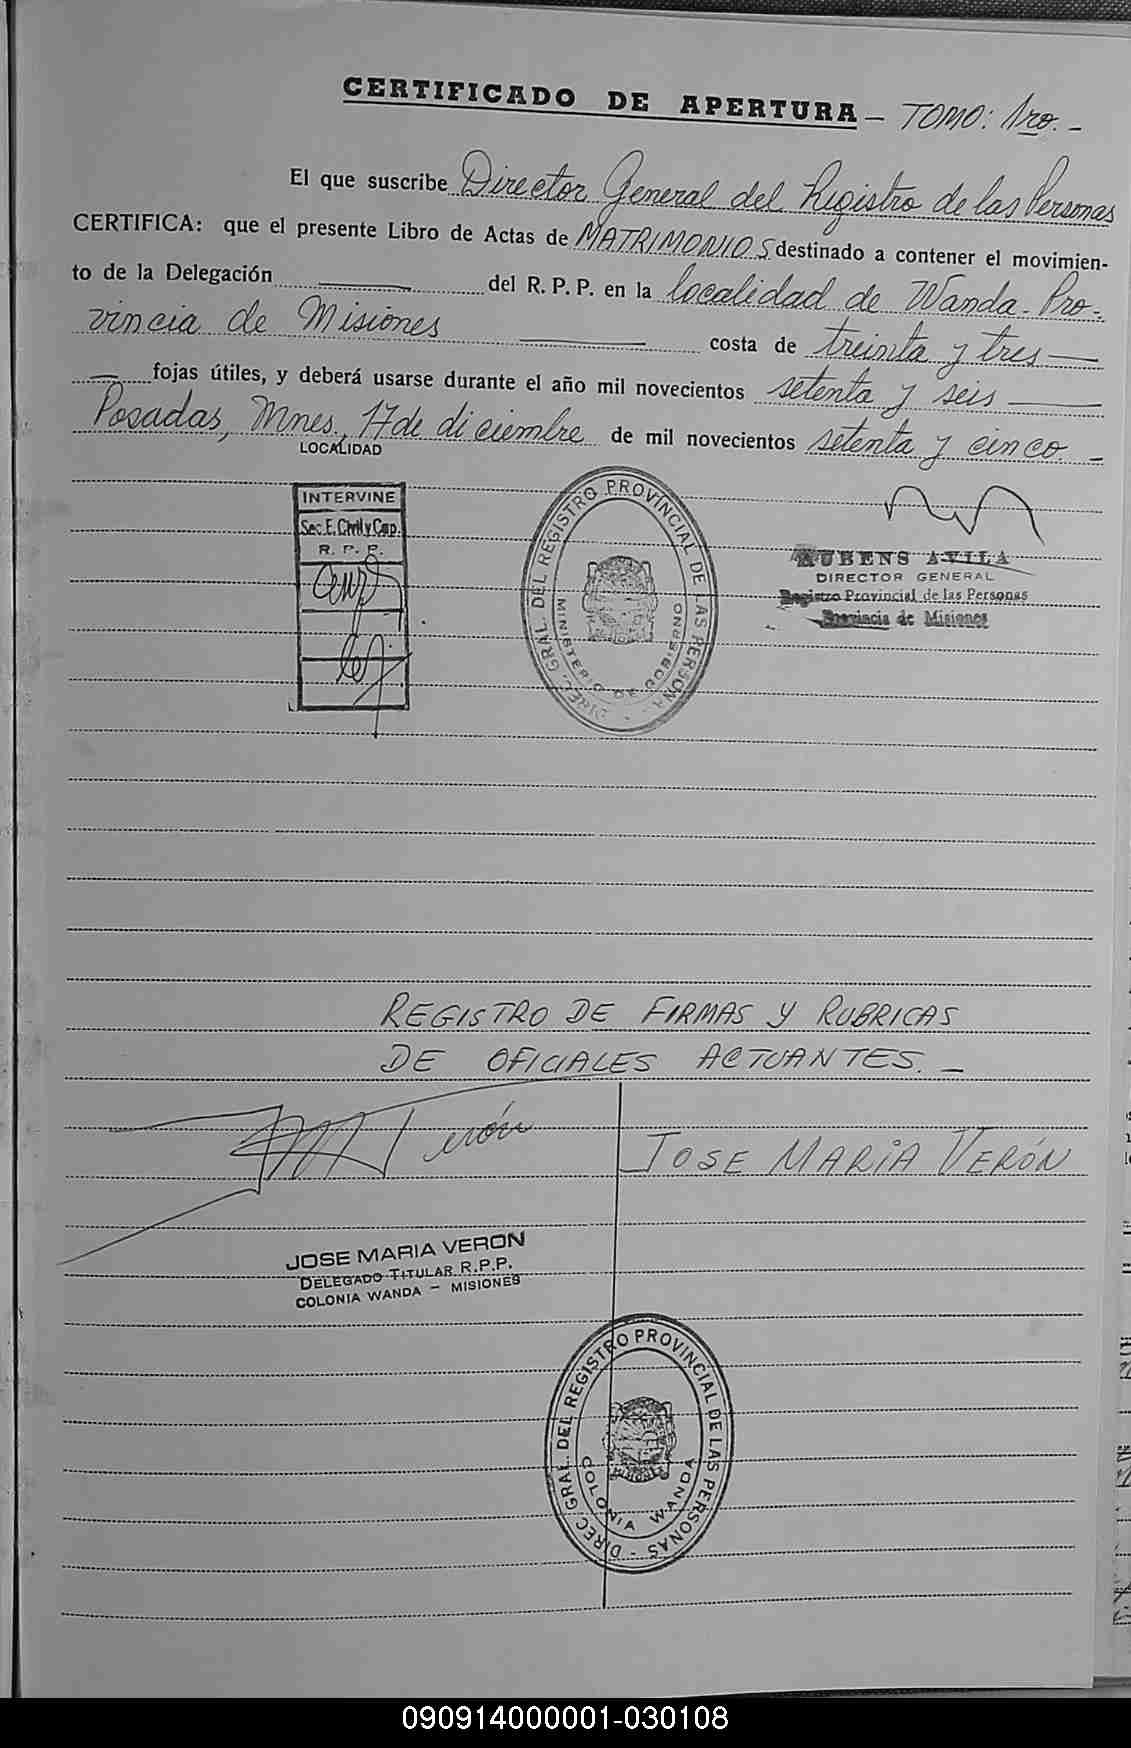 CERTIFICADO DE APERTURA - TOMO: 1ro. -
El que suscribe Director General del Registro de las Personas
CERTIFICA: que el presente Libro de Actas de MATRIMONIOS destinado a contener el movimien-
to de la Delegación del R. P. P. en la localidad de Wanda - Pro-
vincia de Misiones costa de treinta y tres
fojas útiles, y deberá usarse durante el año mil novecientos setenta y seis
Posadas, Mnes., 17 de diciembre de mil novecientos setenta y cinco -
LOCALIDAD
INTERVINE
Sec. E. Civil y Cap.
R. P. P.
DIREC. GRAL. DEL REGISTRO PROVINCIAL DE LAS PERSONAS
MINISTERIO DE GOBIERNO
RUBENS AVILA
DIRECTOR GENERAL
Registro Provincial de las Personas
Provincia de Misiones
REGISTRO DE FIRMAS Y RUBRICAS
DE OFICIALES ACTUANTES. -
Verón
JOSE MARIA VERÓN
JOSE MARIA VERON
DELEGADO TITULAR R.P.P.
COLONIA WANDA - MISIONES
DIREC GRAL. DEL REGISTRO PROVINCIAL DE LAS PERSONAS -
COLONIA WANDA
090914000001-030108